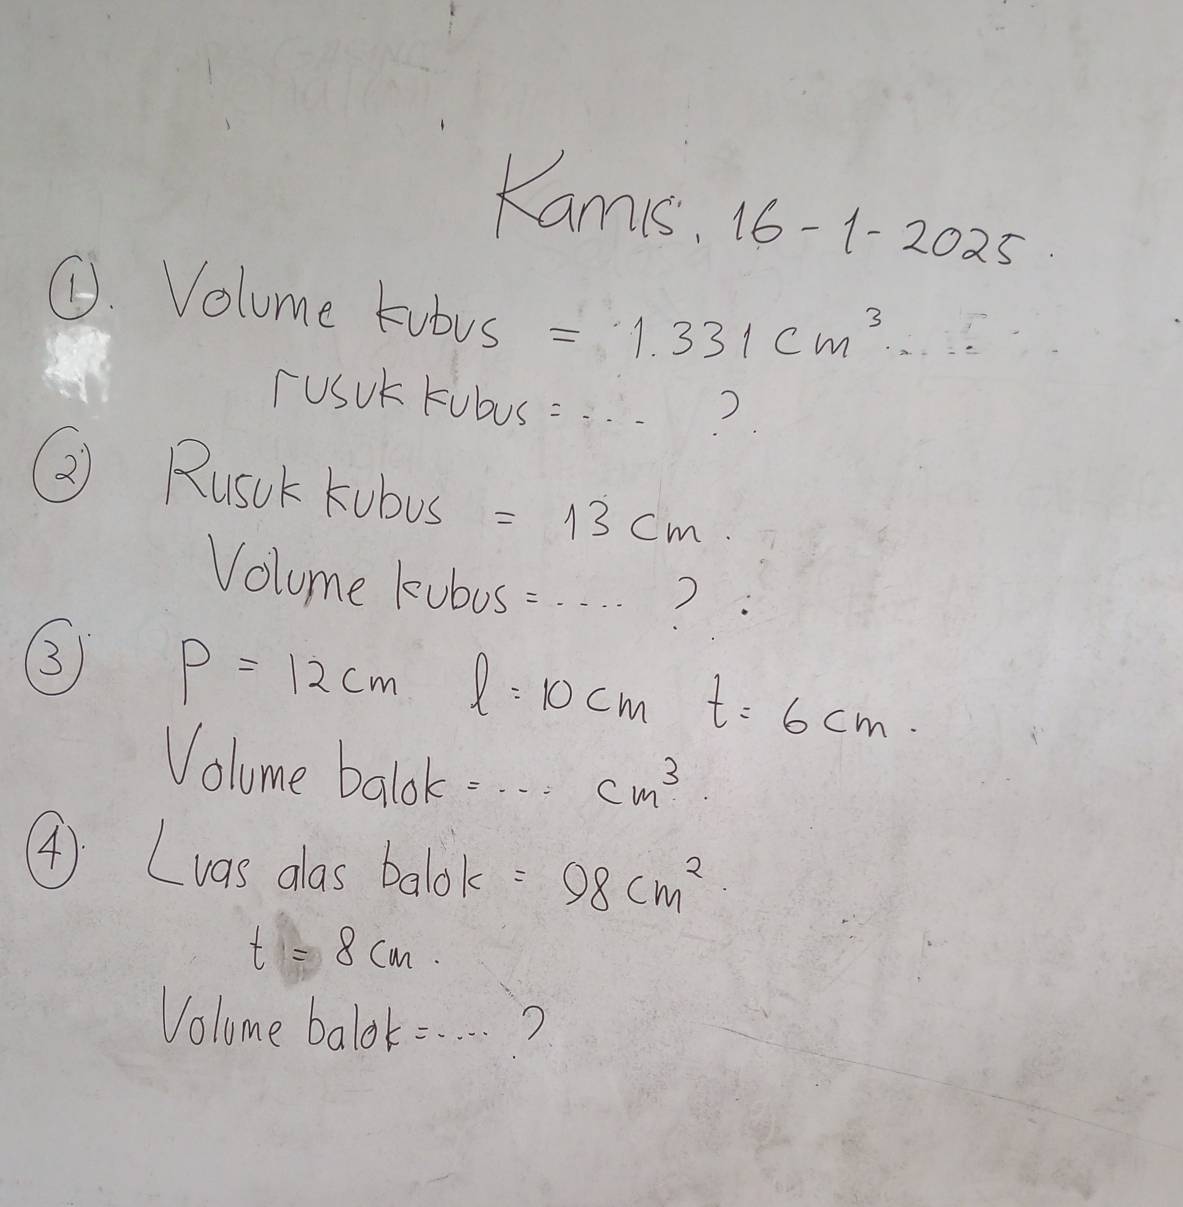 Kamis, 16-1-2025.
①. Volume kubus = 1.331 cm³.....
rusuk kubus = .... ?
② Rusuk kubus = 13 cm.
Volume kubus = ..... ?
③ P = 12 cm l = 10 cm t = 6 cm.
Volume balok = .... cm³.
④. Luas alas balok = 98 cm².
t = 8 cm.
Volume balok = ..... ?